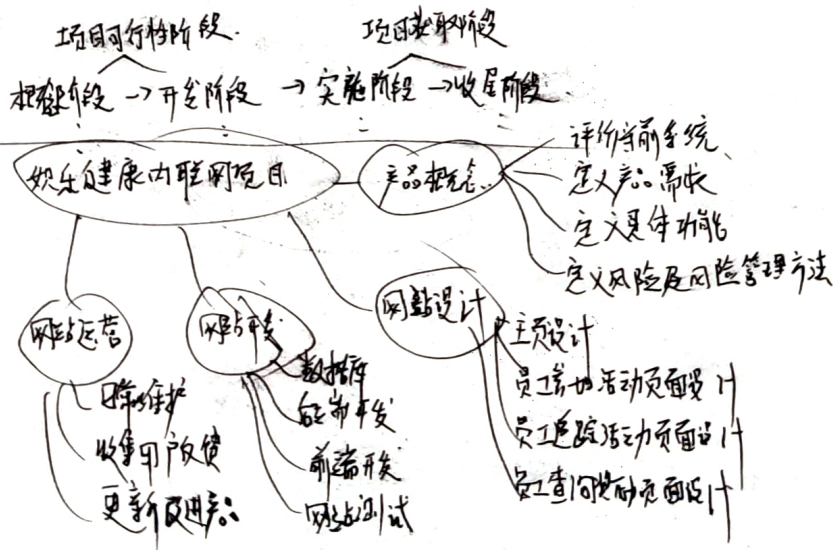 项目可行性阶段. 项目获取阶段
概念阶段 → 开发阶段 → 实施阶段 → 收尾阶段
娱乐健康内联网项目
产品概念
评价当前系统
定义产品需求
定义具体功能
定义风险及风险管理方法
网站运营
日常维护
收集用户反馈
更新改进产品
网站开发
数据库
后端开发
前端开发
网站测试
网站设计
主页设计
员工参加活动页面设计
员工追踪活动页面设计
员工查询奖励页面设计